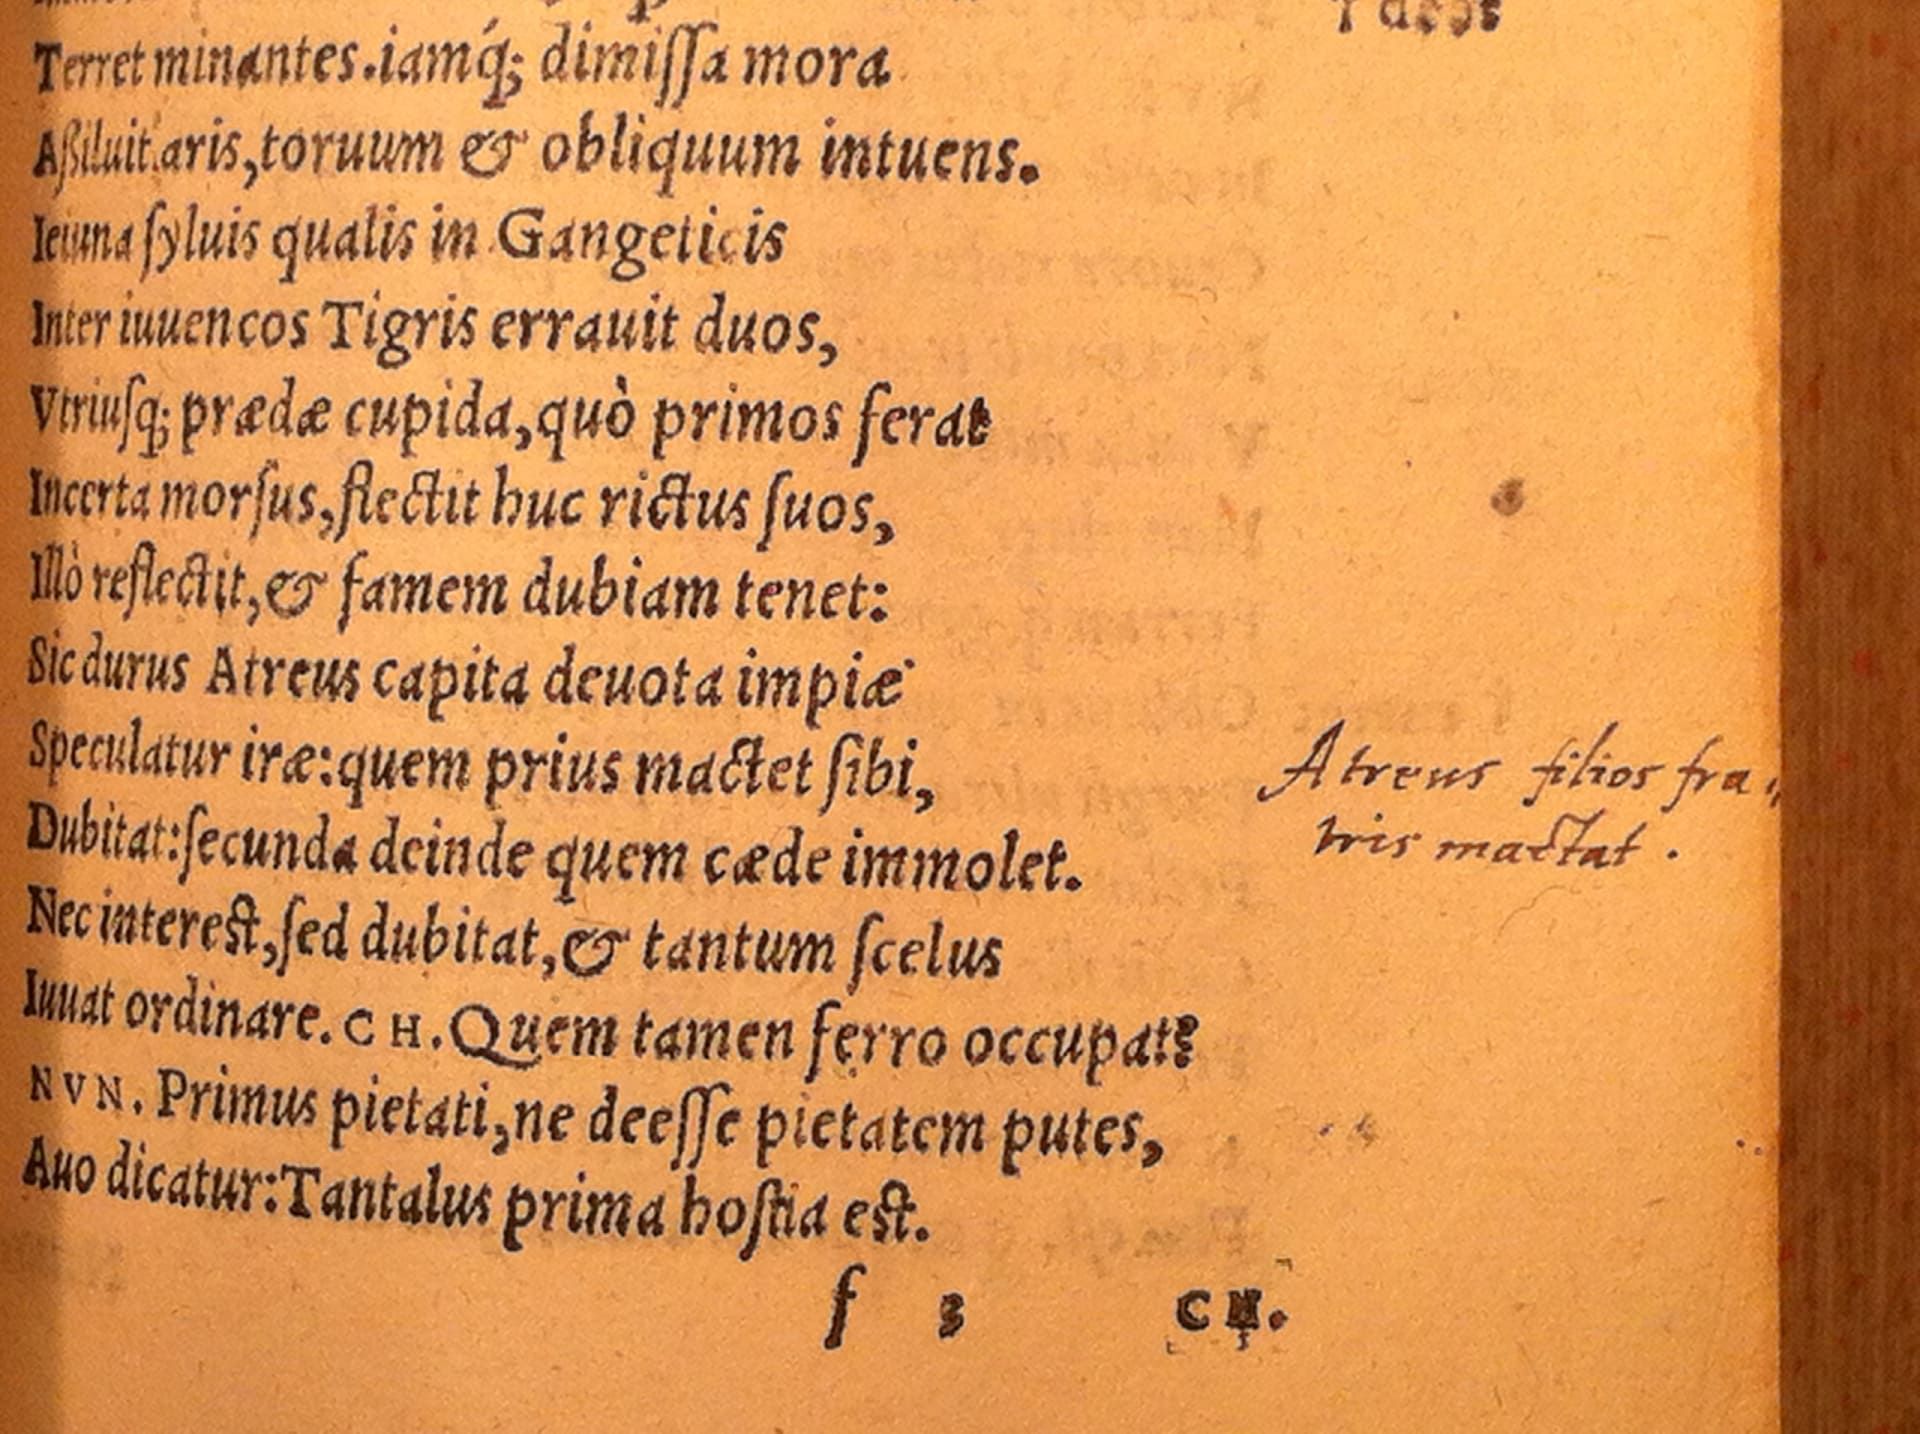 Terret minantes.iamq́; dimiſſa mora
Aßiluit aris,toruum & obliquum intuens.
Ieiuna ſyluis qualis in Gangeticis
Inter iuuencos Tigris errauit duos,
Vtriuſq; prædæ cupida,quò primos ferat
Incerta morſus,flectit huc rictus ſuos,
Illò reflectit,& famem dubiam tenet:
Sic durus Atreus capita deuota impiæ
Speculatur iræ:quem prius mactet ſibi,
Atreus filios fra„
Dubitat:ſecunda deinde quem cæde immolet.
tris mactat .
Nec intereſt,ſed dubitat,& tantum ſcelus
Iuuat ordinare. CH. Quem tamen ferro occupat?
NVN. Primus pietati,ne deeſſe pietatem putes,
Auo dicatur:Tantalus prima hoſtia eſt.
f 3 CH.